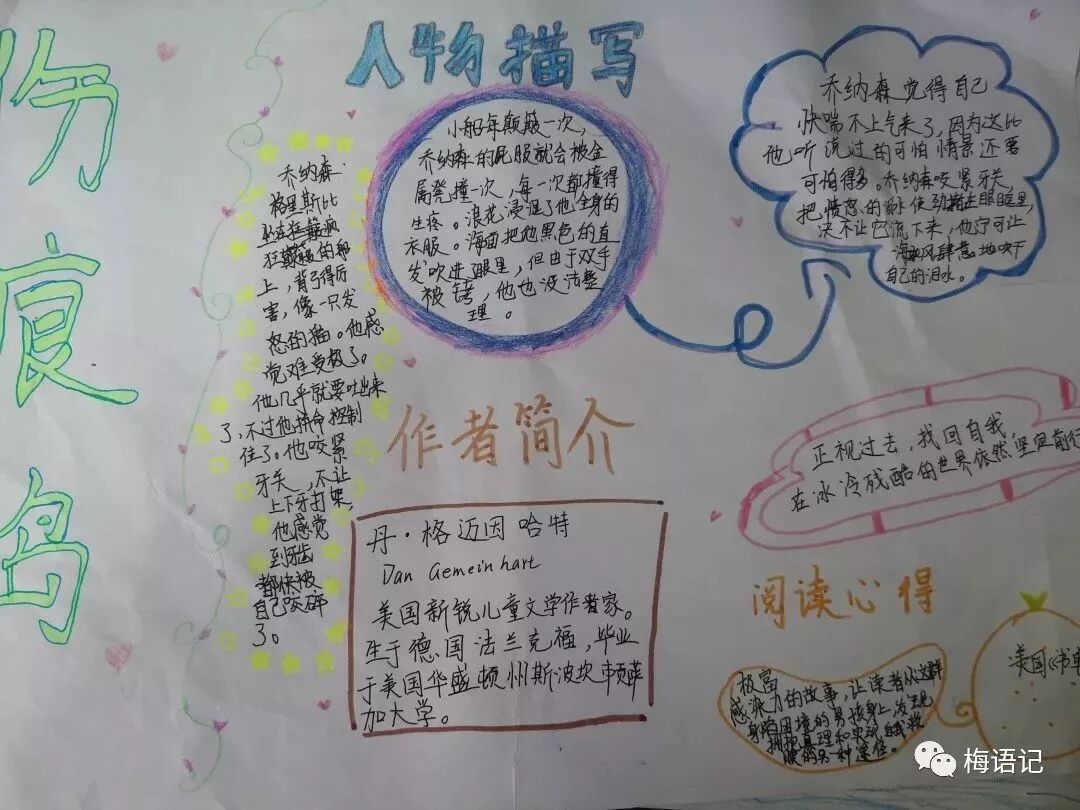 伤痕岛
人物描写
乔纳森·
格里斯比
坐在猛颠疯
狂颠簸的船
上，背弓得厉
害，像一只发
怒的猫。他感
觉难受极了。
他几乎就要吐出来
了，不过他拼命控制
住了。他咬紧
牙关，不让
上下牙打架，
他感觉
到牙齿
都快被
自己咬碎
了。
小船每颠簸一次，
乔纳森的屁股就会被金
属凳撞一次，每一次都撞得
生疼。浪花浸湿了他全身的
衣服。海面把他黑色的直
发吹进眼里，但由于双手
被铐，他也没法整
理。
乔纳森觉得自己
快喘不上气来了，因为这比
他听说过的可怕情景还要
可怕得多。乔纳森咬紧牙关，
把愤怒的泪水使劲挤去眼眶里，
决不让它流下来，他宁可让
海风肆意地吹干
自己的泪水。
作者简介
丹·格迈因哈特
Dan Gemeinhart
美国新锐儿童文学作者家。
生于德国法兰克福，毕业
于美国华盛顿州斯波坎市贡萨
加大学。
正视过去，找回自我
在冰冷残酷的世界依然坚定前行
阅读心得
极富
感染力的故事，让读者从这群
身陷困境的男孩身上，发现
拥抱真理和实现自我救
赎的另一种途径。
美国《书单
梅语记